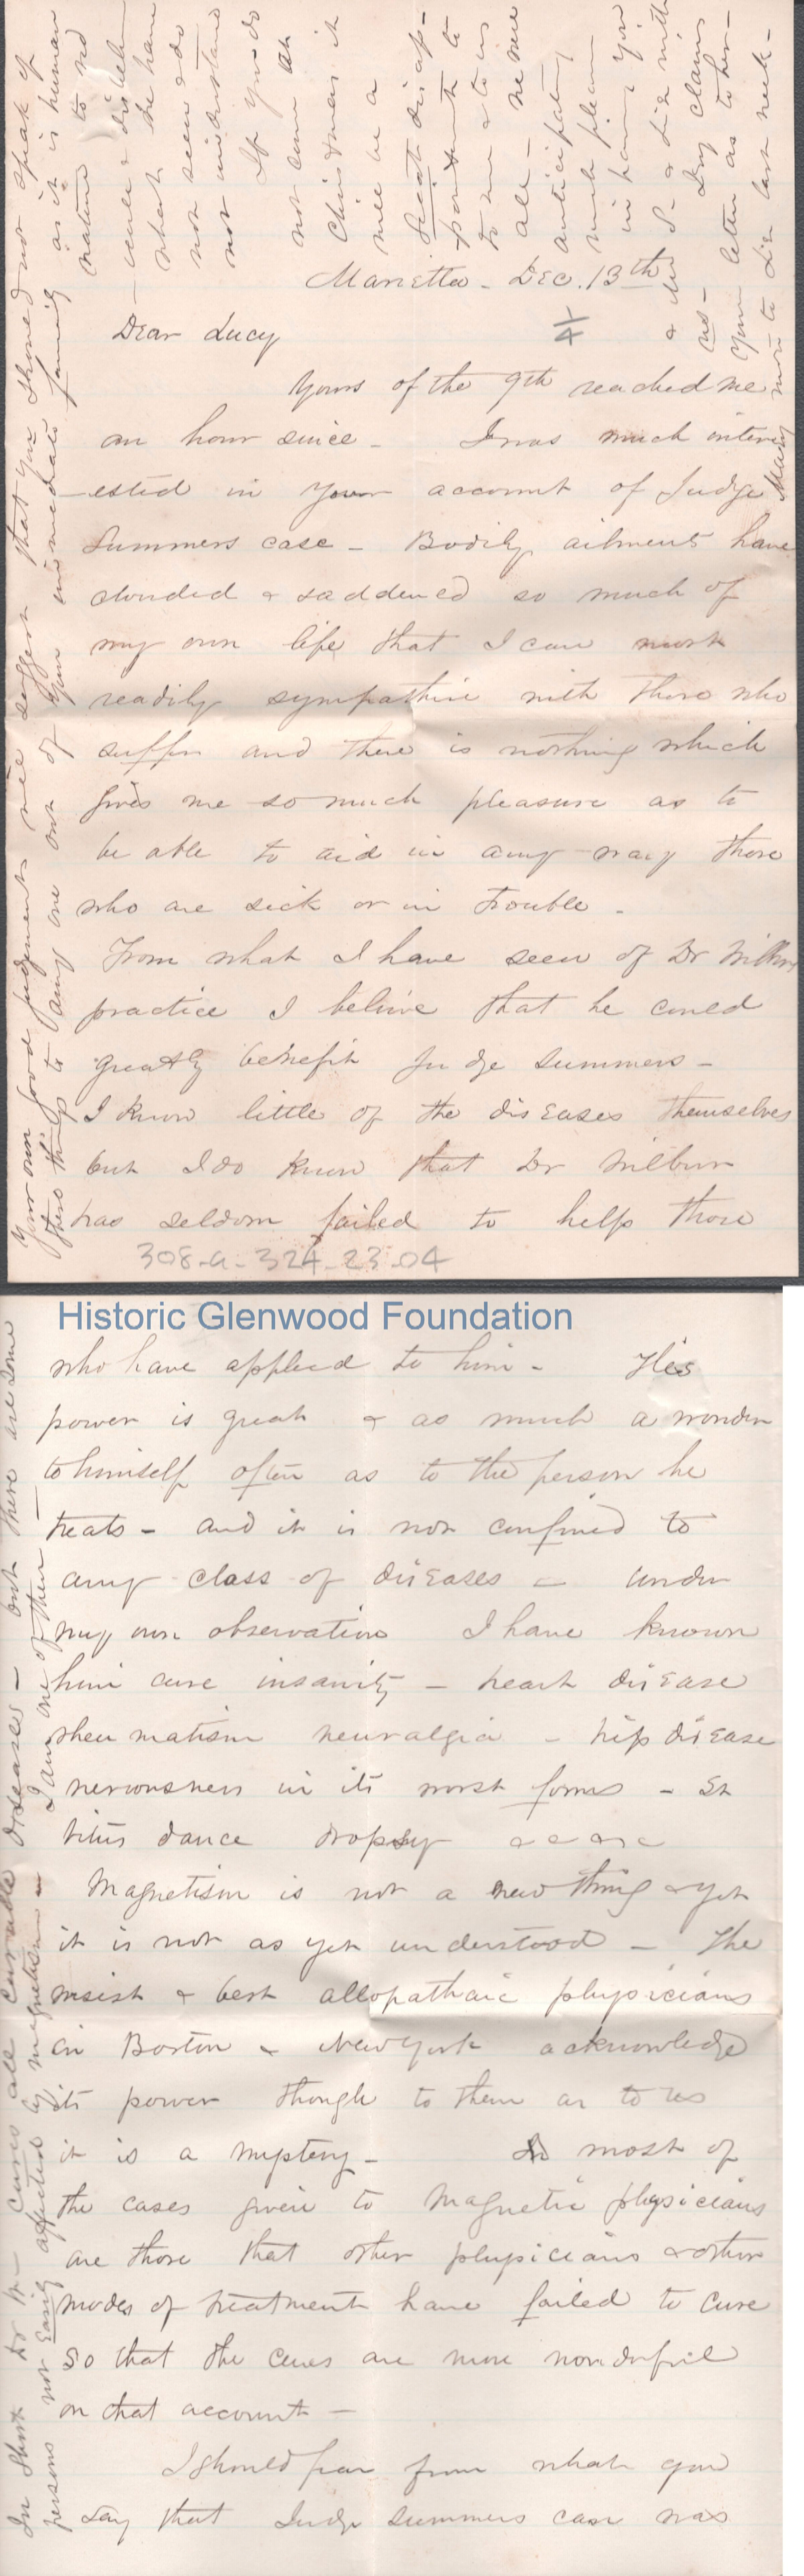 Marietta - Dec. 13th
1/4
Dear Lucy
Yours of the 9th reached me
an hour since - I was much inter
-ested in your account of Judge
Summers case - Bodily ailments have
clouded & saddened so much of
my own life that I can most
readily sympathise with those who
suffer and there is nothing which
gives me so much pleasure as to
be able to aid in any way those
who are sick or in trouble -
From what I have seen of Dr Wilburs
practice I believe that he could
greatly benefit Judge Summers -
I know little of the diseases themselves
but I do know that Dr Wilbur
has seldom failed to help those
308-a-324-23-04
your own good judgment will suggest that you should not speak of
these things to any one out of your immediate family as it is human
nature to
& disbelieve
what he have
not seen & do
not understand
If you do
not come at
Christmas it
will be a
great disap-
pointment to
to me & to us
all - we were
anticipating
much pleasure
in having you
& Lie with
us -
Ivy claims
your letter as to her-
more to Lie last week -
Mary
Historic Glenwood Foundation
who have applied to him - His
power is great & as much a wonder
to himself often as to the person he
treats - and it is not confined to
any class of diseases - under
my own observation I have known
him cure insanity - heart disease
rheumatism neuralgia - hip disease
nervousness in its worst forms - St
Vitus dance dropsy &c &c
Magnetism is not a new thing & yet
it is not as yet understood - The
wisest & best allopathaic physicians
in Boston & New York acknowledge
its power though to them as to us
it is a mystery - So most of
the cases given to Magnetic physicians
are those that other physicians & other
modes of treatment have failed to cure
so that the cures are more wonderful
on that account -
I should fear from what you
say that Judge Summers case was
In short Dr W - cures all curable diseases - but there are some
persons not easily affected by magnetism - I am one of them -